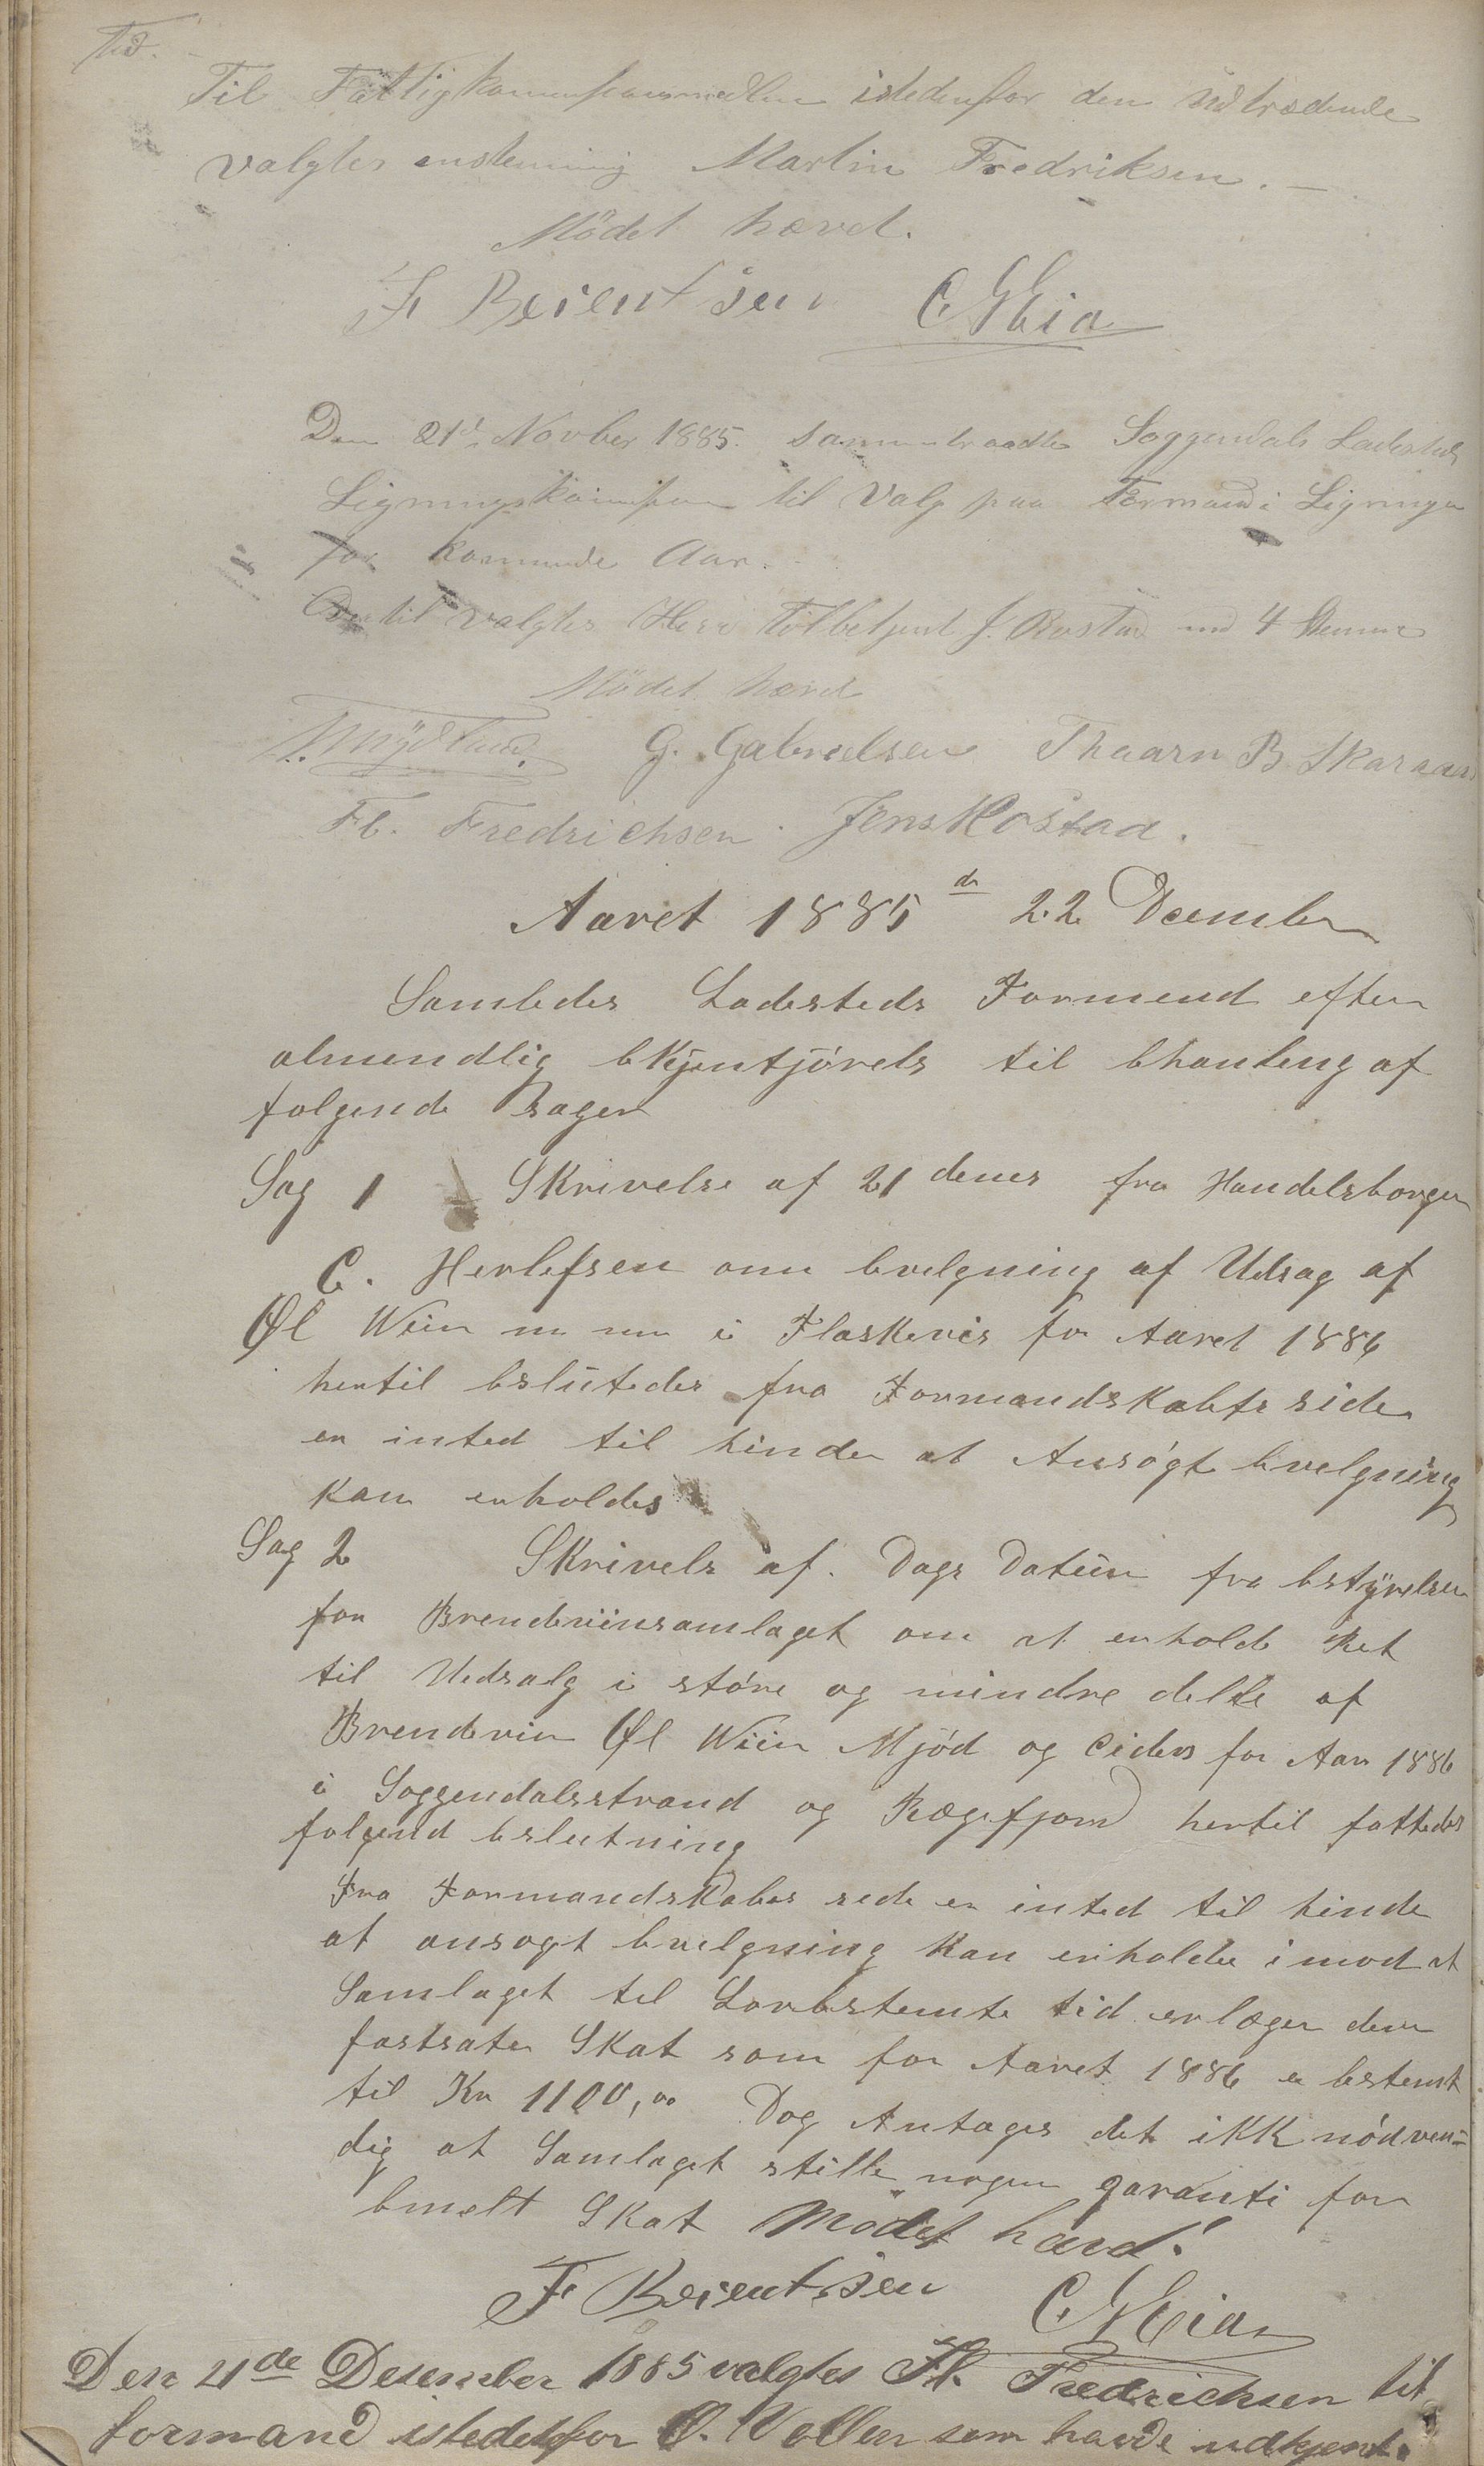 Til Fattigkommissionsmedlem istedenfor den Udtrædende
valgtes enstemmig Martin Fredriksen. —
Mödet hævet.
F Berentsen C
Den 21de Novber 1885 sammentraadte Soggendals Ladesteds
Ligningskommission til Valg paa Formand i Ligningen
for kommende Aar.
Dertil valgtes Herr Toldbetjent J. Rostad med 4 Stemmer
Mödet hævet
G. Gabrielsen Thaarn B Skaraas
Fl. Fredrichsen. Jens Rostad.
Aaret 1885 de 22 December
Samledes Ladesteds Formend efter
almendlig bkjentjörels til bhanling af
følgende Sager
Sag 1 Skrivelse af 21 denes fra Handelsborger
C. Herlefsen om bevelgning af Udsag af
Øl Wiin m m i Flaskevis for Aaret 1886
hertil bslutedes fra Formandskabets side
er inted til hinder at Ansögt bevelgning
kan erholdes
Sag 2 Skrivels af. Dags Datum fra bstÿrelsen
for Brendeviinsamlaget om at erholde Ret
til Uedsalg i störe og mindre delle af
Brendevin Øl Wiin Mjöd og Ciders for Aar 1886
i Soggendalsstrand og Rægefjord hertil fattedes
følgend bslutning
Fra Formandskabes side er inted til hinde
at ansogt bevelgning kan erholdes imod at
Samlaget til Lovbstemte tid erlæger den
fastsate Skat som for Aaret 1886 er bestemt
til Kr 1100,00 Dog Antages det ikk nödven=
dig at Samlaget stille nogen garanti for
bmelt Skat Mödet hævd.
F Berentsen C
Den 21de Desember 1885 valgtes Fl. Fredrichsen til
formand istedetfor O. Vollen som havde udtjent.